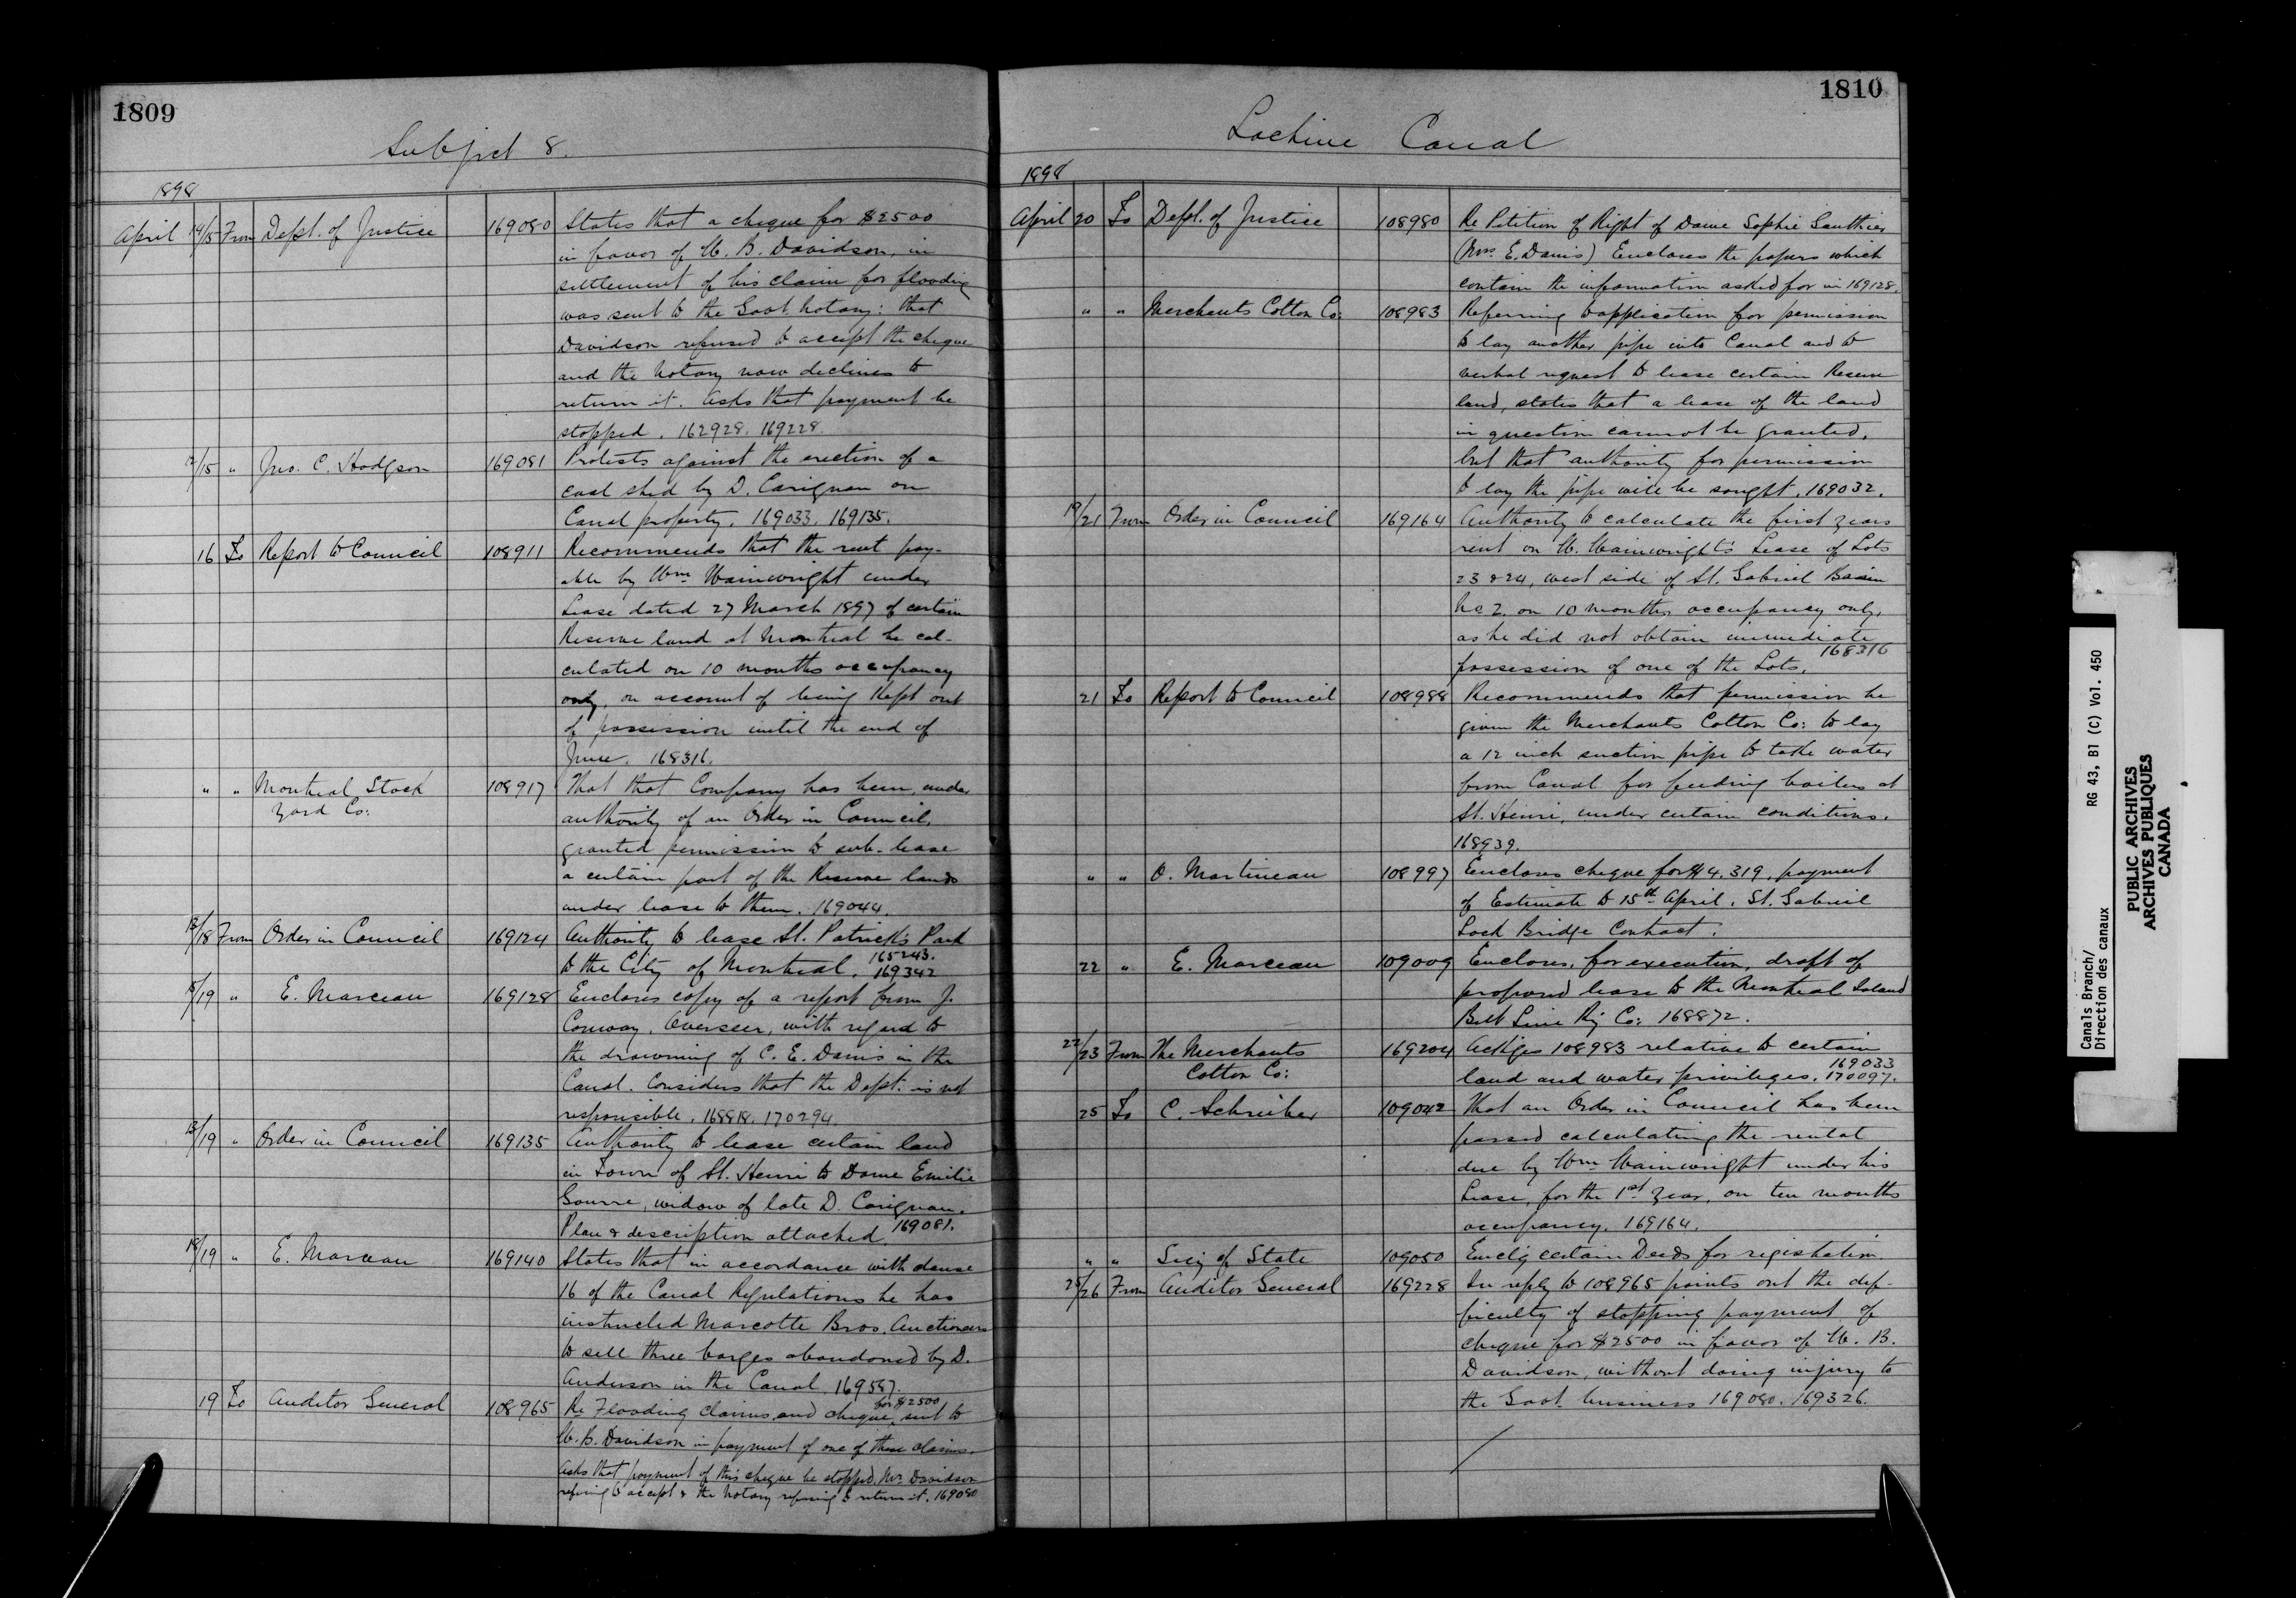 1809
Subject 8.
1898
April 14/15 From Dept. of Justice 169080 States that a cheque for $2500
in favor of W. B. Davidson, in
settlement of his claim for flooding
was sent to the Govt. Notary: that
Davidson refused to accept the cheque
and the Notary now declines to
return it. Asks that payment be
stopped. 162928. 169228.
/15 " Jno. C. Hodgson 169081 Protests against the erection of a
coal shed by D. Carignan on
Canal property. 169033. 169135.
16 To Report to Council 108911 Recommends that the rent pay-
able by Wm Wainwright under
Lease dated 27 March 1897 of certain
Reserve land at Montreal be cal-
culated on 10 months occupancy
only, on account of being kept out
of possession until the end of
June. 168316.
" " Montreal Stock 108917 That that Company has been, under
Yard Co: authority of an Order in Council,
granted permission to sub-lease
a certain part of the Reserve lands
under lease to them. 169044.
13/18 From Order in Council 169124 Authority to lease St. Patrick's Park
to the City of Montreal. 165243. 169342
18/19 " E. Marceau 169128 Encloses copy of a report from J.
Conway, Overseer, with regard to
the drowning of C. E. Danis in the
Canal. Considers that the Dept. is not
responsible. 168818. 170294.
13/19 " Order in Council 169135 Authority to lease certain land
in Town of St. Henri to Dame Emilie
widow of late D. Carignan.
Plan & description attached. 169081.
18/19 " E. Marceau 169140 States that in accordance with clause
16 of the Canal Regulations he has
instructed Marcotte Bros. Auctioneers
to sell three barges abandoned by D.
Anderson in the Canal. 169587.
19 To Auditor General 108965 Re Flooding claims and cheque for $2500 sent to
W. B. Davidson in payment of one of these claims.
Asks that payment of this cheque be stopped, Mr. Davidson
refusing to accept & the Notary refusing to return it. 169080
1810
Lachine Canal
1898
April 20 To Dept. of Justice 108980 Re Petition of Right of Dame Sophie Gauthier
(Mrs. E. Danis) Encloses the papers which
contain the information asked for in 169128.
" " Merchants Cotton Co: 108983 Referring to application for permission
to lay another pipe into Canal and to
verbal request to lease certain Reserve
land, states that a lease of the land
in question cannot be granted,
but that authority for permission
to lay the pipe will be sought. 169032.
19/21 From Order in Council 169164 Authority to calculate the first years
rent on W. Wainwright's Lease of Lots
23 & 24, west side of St. Gabriel Basin
No 2. on 10 months occupancy only,
as he did not obtain immediate
possession of one of the Lots. 168316
21 To Report to Council 108988 Recommends that permission be
given the Merchants Cotton Co: to lay
a 12 inch suction pipe to take water
from Canal for feeding boilers at
St. Henri, under certain conditions.
168939.
" " O. Martineau 108997 Encloses cheque for $4,319, payment
of Estimate to 15th April. St. Gabriel
Lock Bridge Contract.
22 " E. Marceau 109009 Encloses, for execution, draft of
proposed lease to the Montreal Island
Belt Line Ry Co: 168872.
22/23 From The Merchants 169204 Ackges 108983 relative to certain
Cotton Co: land and water privileges. 169033 170097.
25 To C. Schreiber 109042 That an Order in Council has been
passed calculating the rental
due by Wm Wainwright under his
Lease, for the 1st year, on ten months
occupancy. 169164.
" " Secy of State 109050 Enclg certain Deeds for registration.
25/26 From Auditor General 169228 In reply to 108965 points out the dif-
ficulty of stopping payment of
cheque for $2500 in favor of W. B.
Davidson, without doing injury to
the Govt. business 169080. 169326.
Canals Branch/ RG 43, B1 (C) Vol. 450
Direction des canaux
PUBLIC ARCHIVES
ARCHIVES PUBLIQUES
CANADA